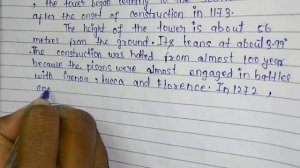 , the tower began leaning to the
after the onset of construction in 1173.
The height of the tower is about 56
metres from the ground. Its leans at about 3.99°
. The construction was halted from almost 100 year
because the pisans were almost engaged in battles
with Genoa, Lucca and Florence. In 1272,